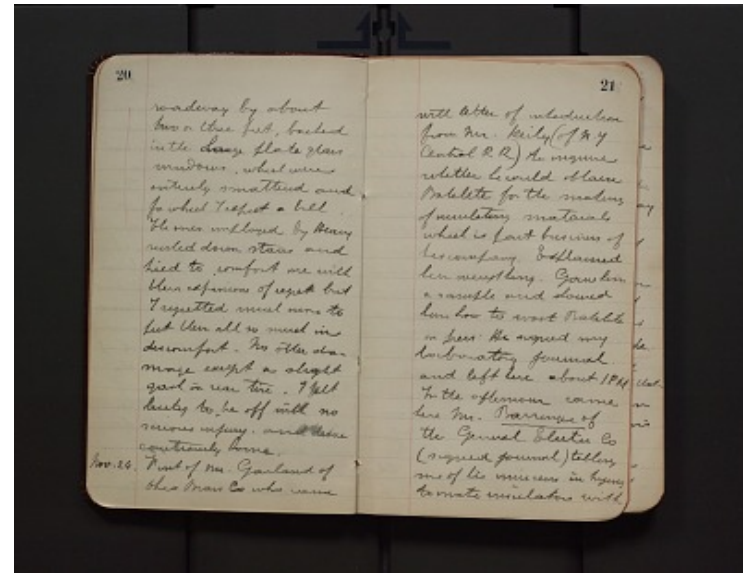 20
roadway by about
two or three feet, backed
in the large plate glass
windows, which were
entirely smattered and
for which I expect a bill.
The men employed by Henry
rushed down stairs and
tried to comfort me with
their expressions of regret but
I regretted much more to
put them all so much in
discomfort. No other da-
mage except a slight
gash in rear tire. I felt
lucky to be off with no
serious injury. and drove
cautiously home.
Nov. 26. Visit of Mr. Garland of
Ohio Brass Co who came
21
with letter of introduction
from Mr. Keily (of N.Y
Central R.R.) to inquire
whether he could obtain
Bakelite for the making
of insulating materials
which is part business of
his company. Explained
him everything. Gave him
a sample and showed
him how to work Bakelite
in press. He signed my
laboratory journal.
and left here about 1 P.M
In the afternoon came
here Mr. of
the General Electric Co
(signed journal) telling
me of his success in trying
to make insulators with